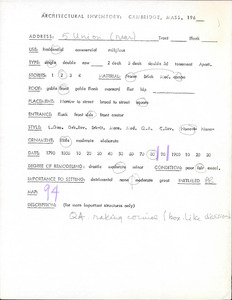 ARCHITECTURAL INVENTORY: CAMBRIDGE, MASS. 196
ADDRESS: 5 Union (rear) Tract Block
USE: residential commercial religious
TYPE: single double row 2 deck 3 deck double 3d tenement Apart.
STORIES: 1 2 3 4 MATERIAL: frame brick stone
ROOF: gable front gable flank mansard flat hip
PLACEMENT: Narrow to street broad to street square
ENTRANCE: flank front side front center
STYLE: Q.A. None
ORNAMENT: little moderate elaborate
DATE: 1790 1800 10 20 30 40 50 60 70 80 90 1900 10 20 30
DEGREE OF REMODELING: drastic moderate minor CONDITION: poor fair excel.
IMPORTANCE TO SETTING: detrimental none moderate great INITIALED
MAP: 94
DESCRIPTION: (for more important structures only)
QA raking cornice (box-like divisions